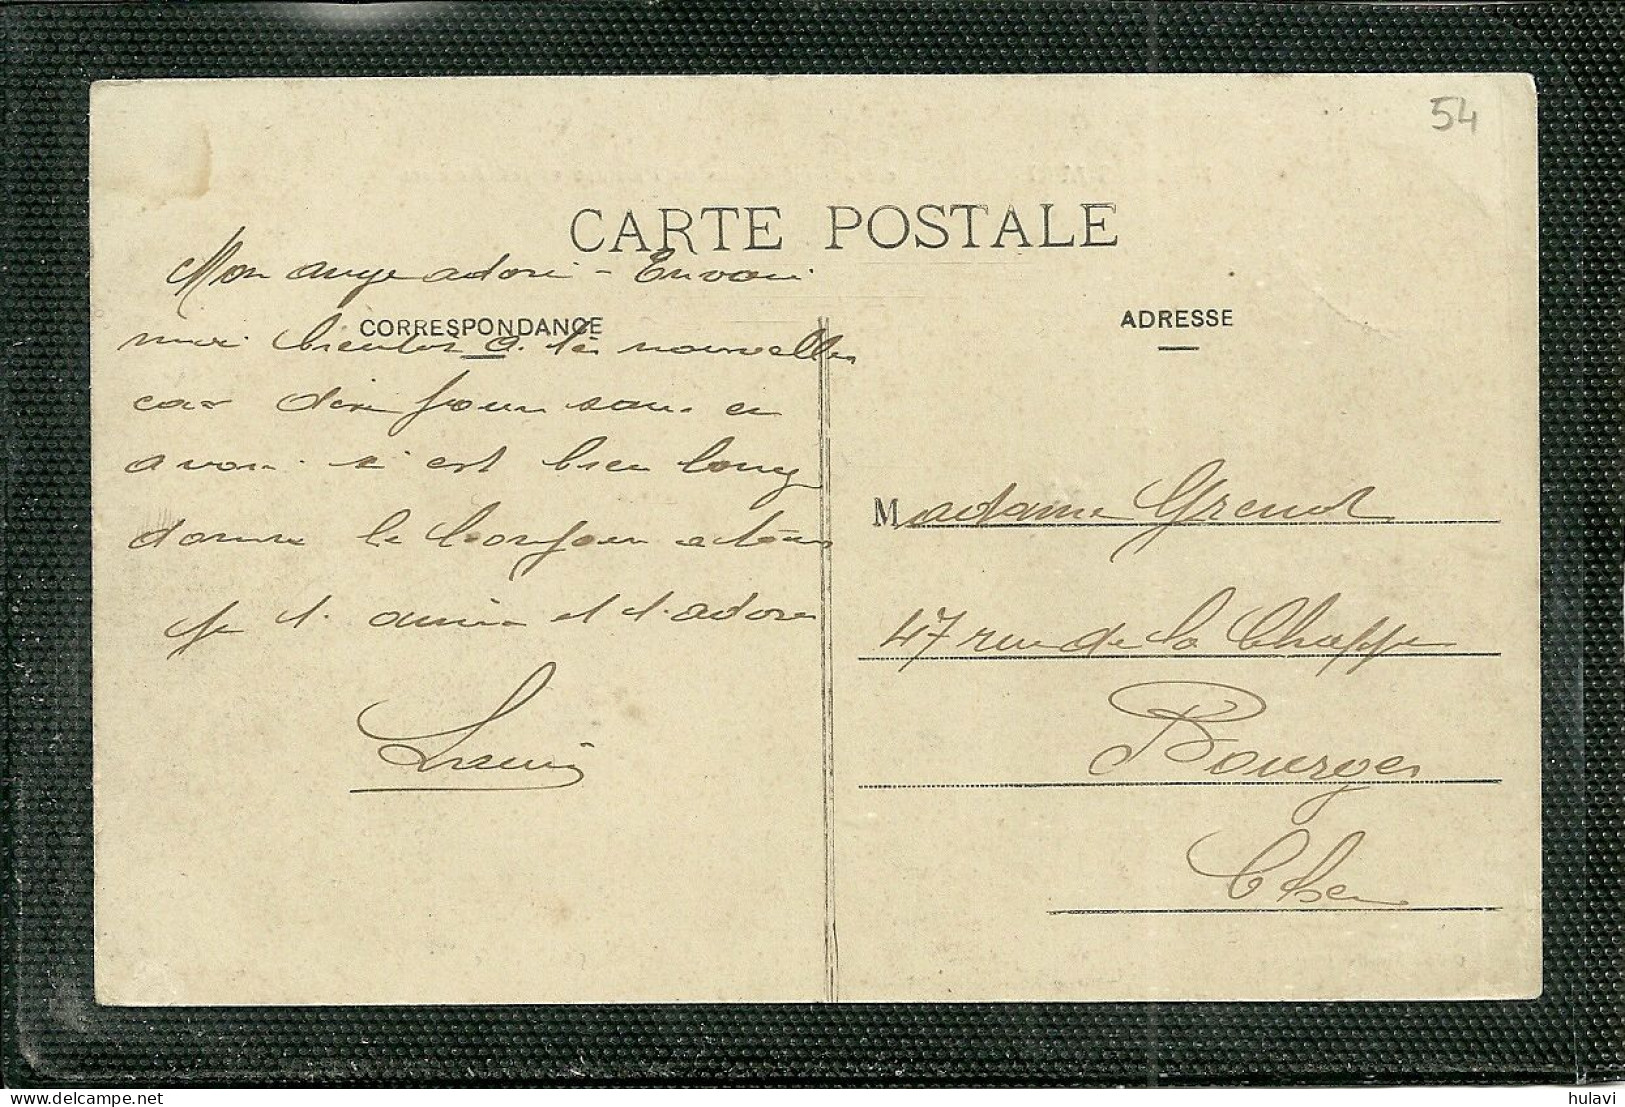 54
CARTE POSTALE
Mon ange adoré - Envoie
moi bientot de tes nouvelles
CORRESPONDANCE
car dix jours sans en
avoir c'est bien long
donne le bonjour a tous
je t'aime et t'adore
Louis
ADRESSE
Madame Grenot
47 rue de la Chappe
Bourges
Cher
hulavi